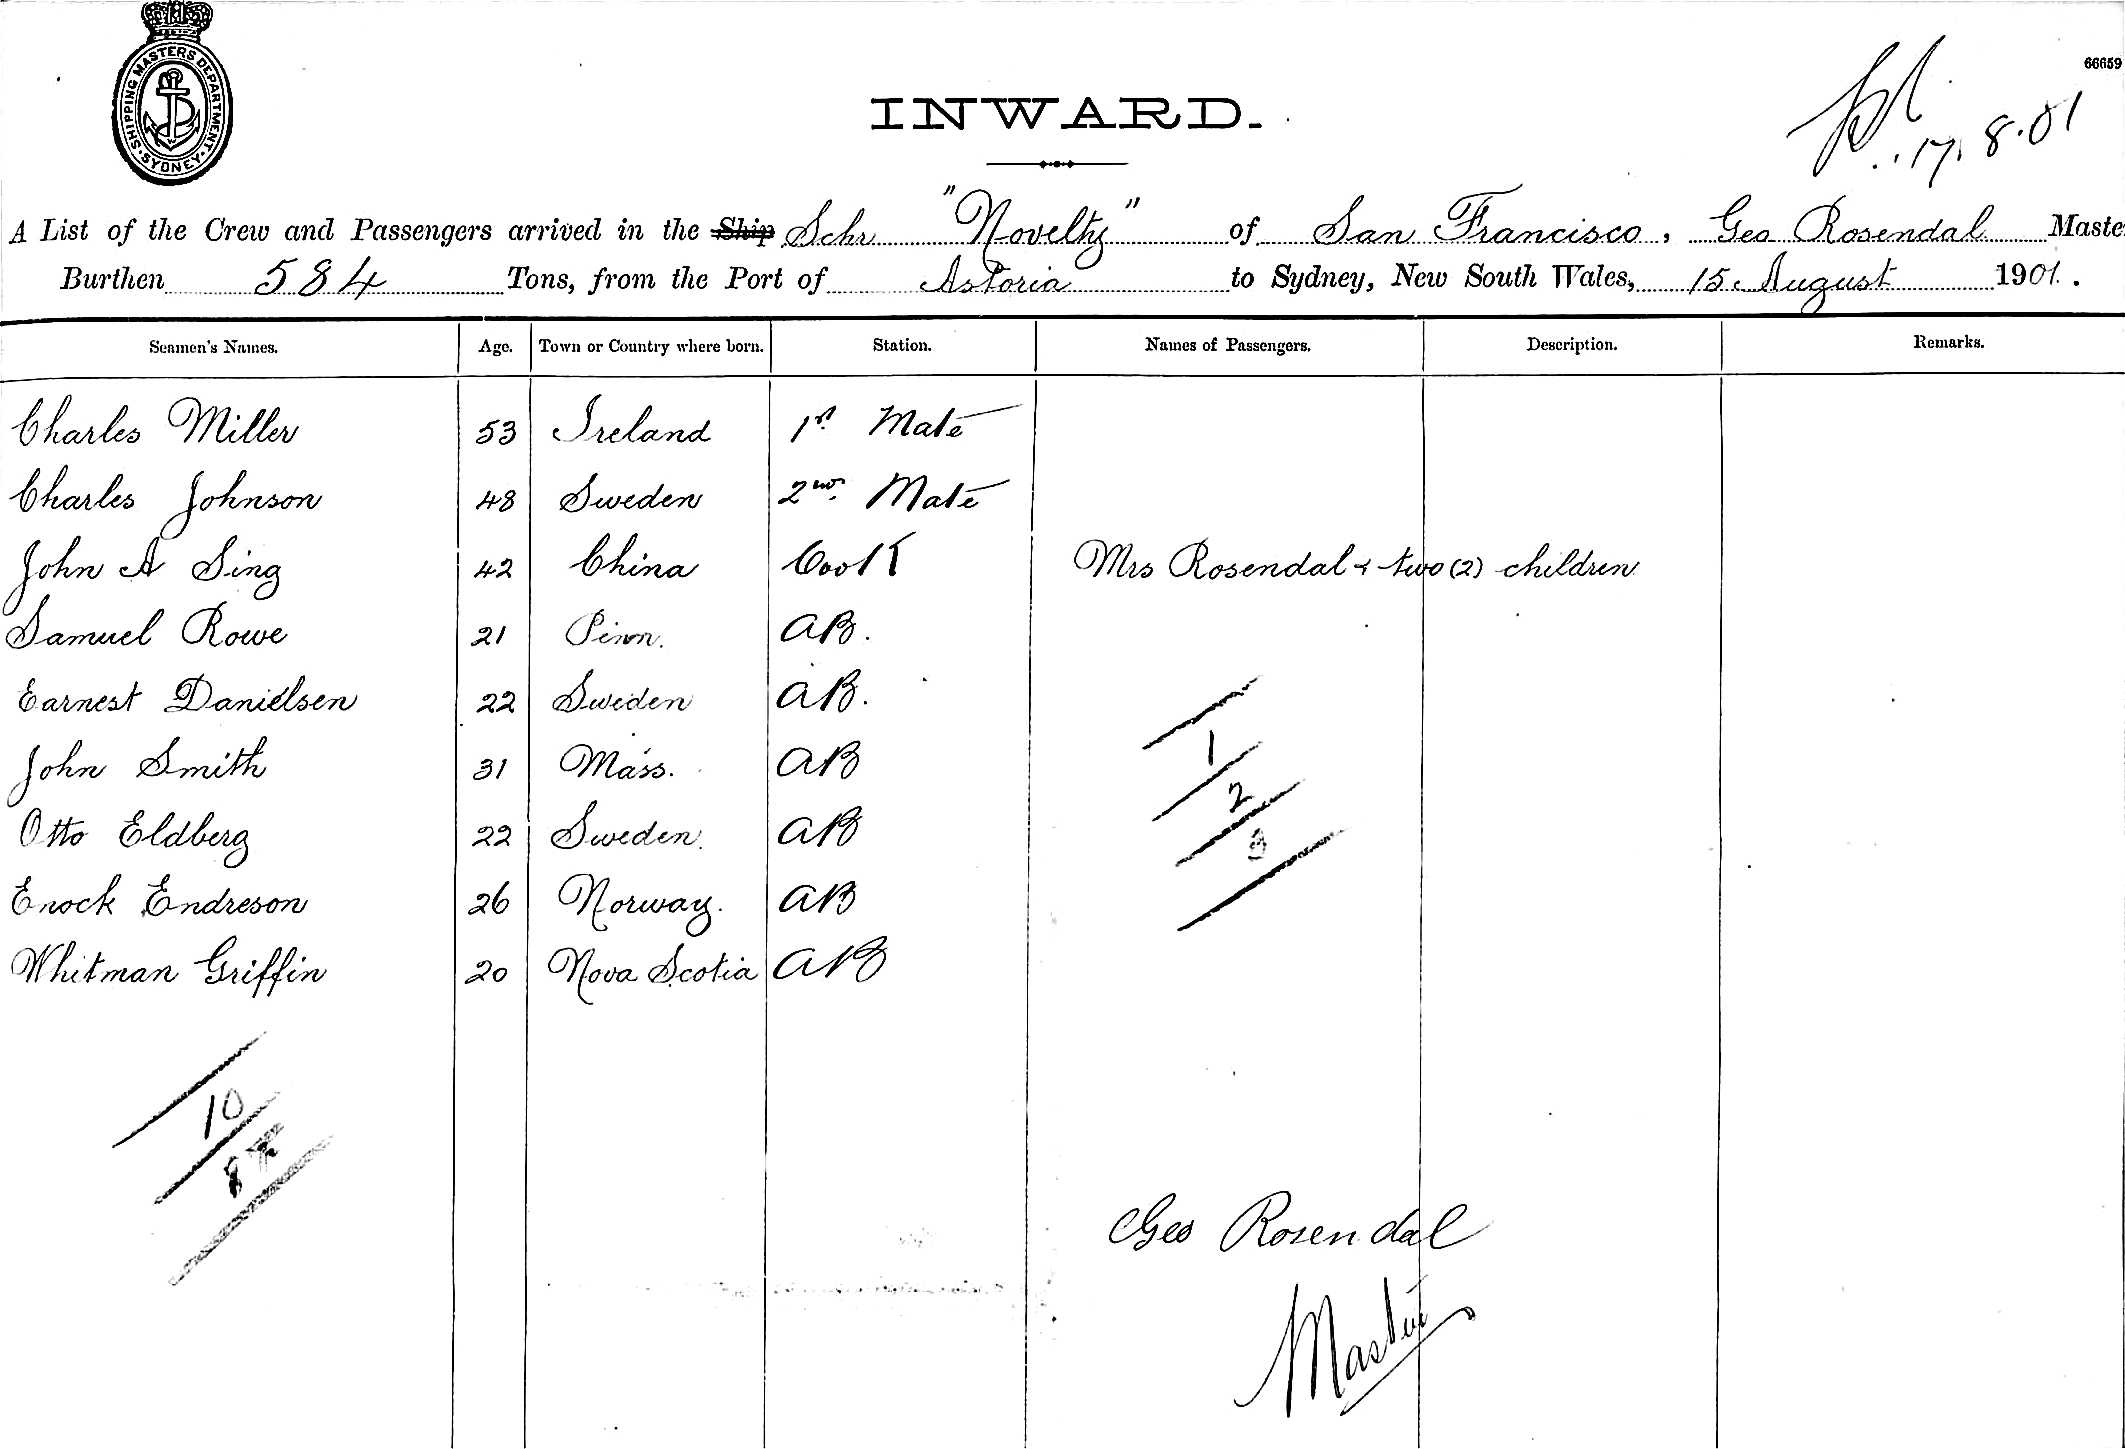 SHIPPING MASTERS DEPARTMENT · SYDNEY ·
66659
17.8.01
INWARD.
A List of the Crew and Passengers arrived in the Ship Schr "Novelty" of San Francisco, Geo Rosendal Maste
Burthen 584 Tons, from the Port of Astoria to Sydney, New South Wales, 15 August 1901.
Seamen's Names. Age. Town or Country where born. Station. Names of Passengers. Description. Remarks.
Charles Miller 53 Ireland 1st Mate
Charles Johnson 48 Sweden 2nd Mate
John A Sing 42 China Cook Mrs Rosendal & two (2) children
Samuel Rowe 21 Penn. AB.
Earnest Danielsen 22 Sweden AB.
John Smith 31 Mass. AB
Otto Eldberg 22 Sweden. AB
Enock Endreson 26 Norway. AB
Whitman Griffin 20 Nova Scotia AB
1
2
3
10
8
Geo Rosendal
Master